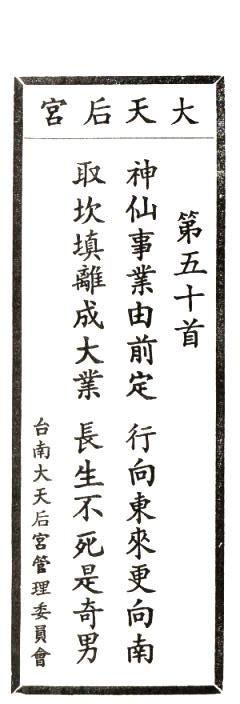 大天后宮
第五十首
神仙事業由前定 行向東來更向南
取坎填離成大業 長生不死是奇男
台南大天后宮管理委員會